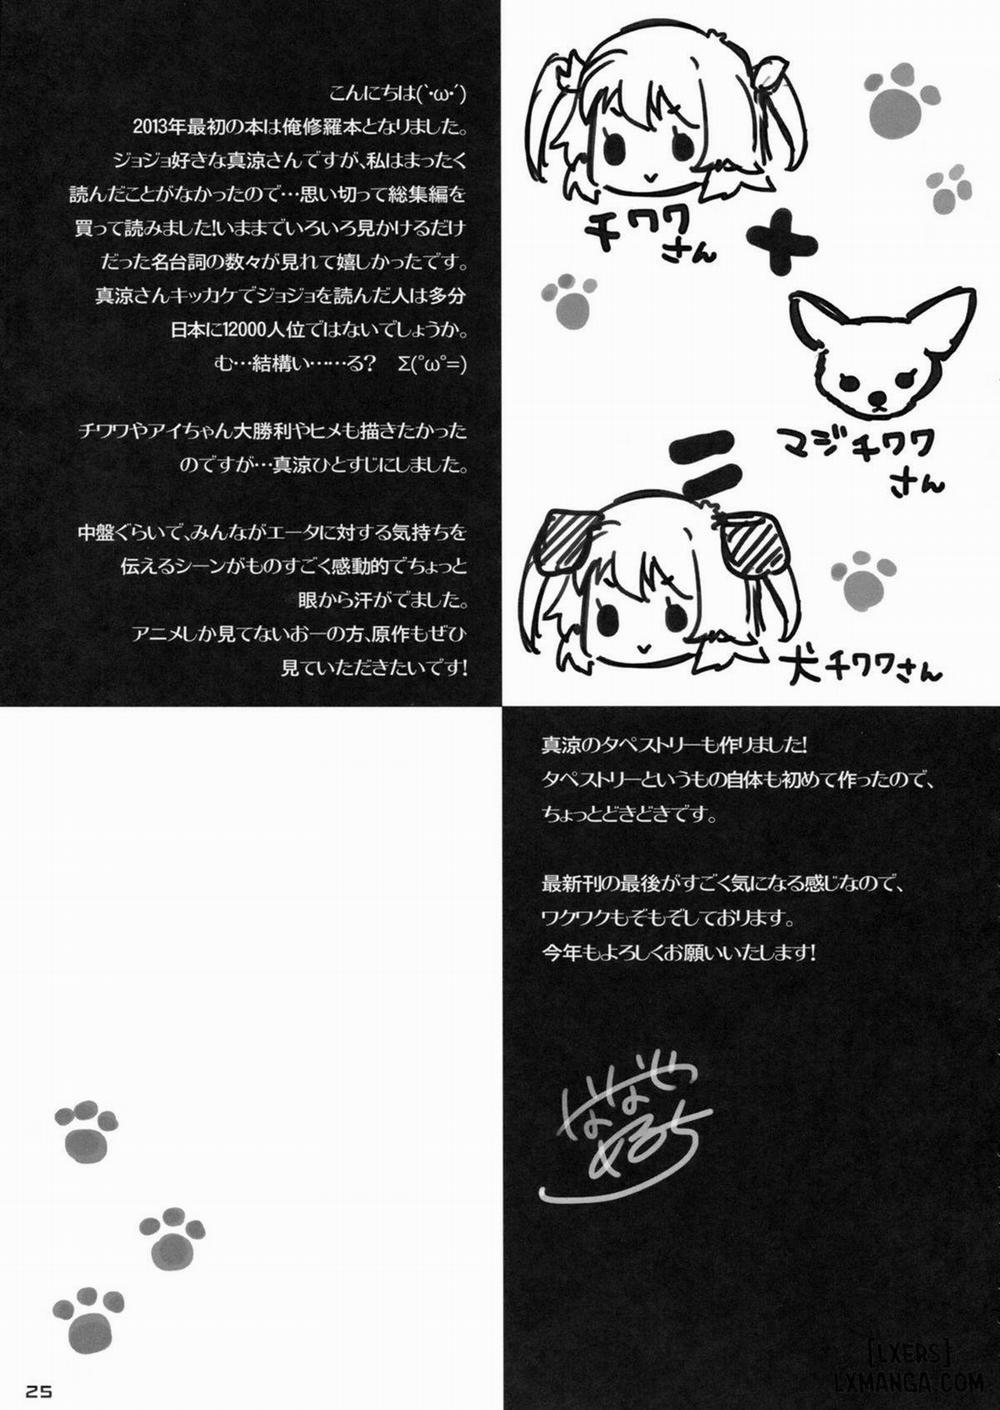 こんにちは(`･ω･´)
2013年最初の本は俺修羅本となりました。
ジョジョ好きな真涼さんですが、私はまったく
読んだことがなかったので…思い切って総集編を
買って読みました!いままでいろいろ見かけるだけ
だった名台詞の数々が見れて嬉しかったです。
真涼さんキッカケでジョジョを読んだ人は多分
日本に12000人位ではないでしょうか。
む…結構い……る? Σ(°ω°=)
チワワやアイちゃん大勝利やヒメも描きたかった
のですが…真涼ひとすじにしました。
中盤ぐらいで、みんながエータに対する気持ちを
伝えるシーンがものすごく感動的でちょっと
眼から汗がでました。
アニメしか見てないおーの方、原作もぜひ
見ていただきたいです!
チワワ
さん
+
マジチワワ
さん
=
犬チワワさん
真涼のタペストリーも作りました!
タペストリーというもの自体も初めて作ったので、
ちょっとどきどきです。
最新刊の最後がすごく気になる感じなので、
ワクワクもぞもぞしております。
今年もよろしくお願いいたします!
ななせ
めるち
25
[LXERS]
LXMANGA.COM